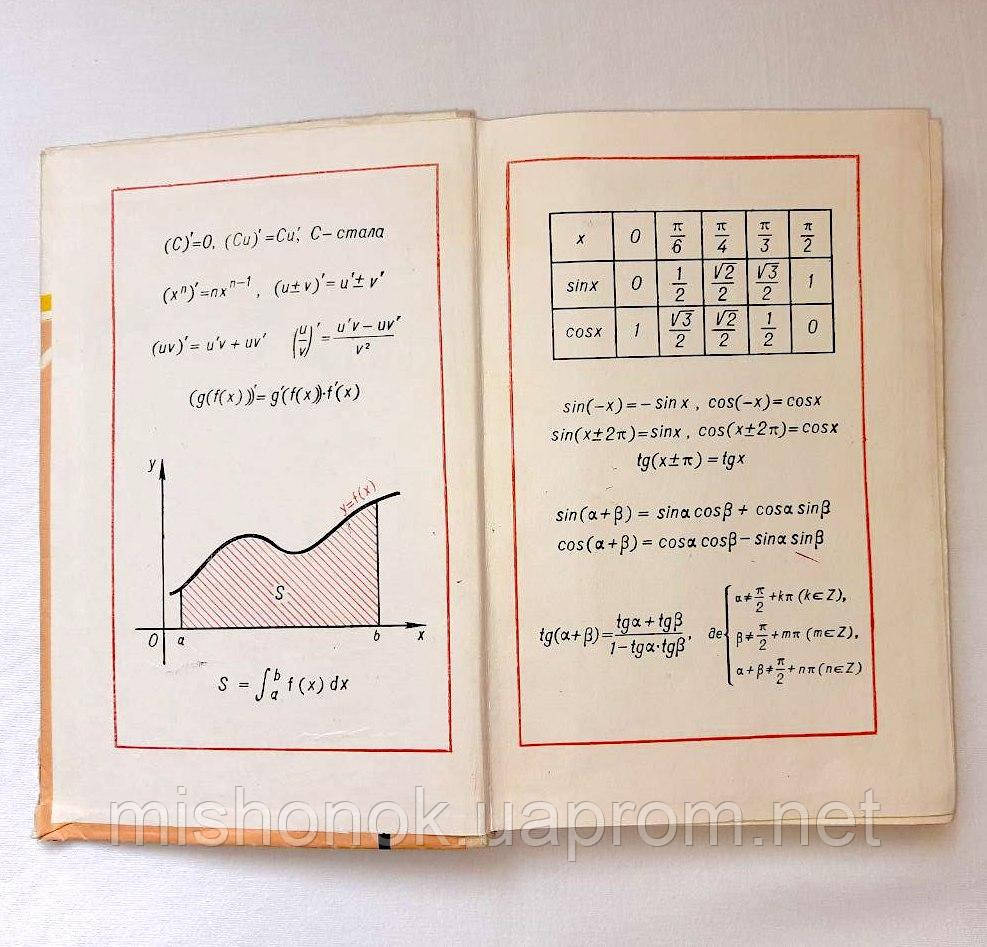 (C)'=0, (Cu)'=Cu', C–стала
(xⁿ)'=nxⁿ⁻¹, (u±v)'=u'±v'
(uv)'=u'v+uv' (u/v)'=(u'v–uv')/v²
(g(f(x)))'=g'(f(x))·f'(x)
y
y=f(x)
S
0 a b x
S = ∫ₐᵇ f(x)dx
x 0 π/6 π/4 π/3 π/2
sinx 0 1/2 √2/2 √3/2 1
cosx 1 √3/2 √2/2 1/2 0
sin(–x)=–sinx, cos(–x)=cosx
sin(x±2π)=sinx, cos(x±2π)=cosx
tg(x±π)=tgx
sin(α+β) = sinα cosβ + cosα sinβ
cos(α+β) = cosα cosβ – sinα sinβ
tg(α+β)=(tgα+tgβ)/(1–tgα·tgβ), де { α≠π/2+kπ (k∈Z),
β≠π/2+mπ (m∈Z),
α+β≠π/2+nπ (n∈Z)
mishonok.uaprom.net